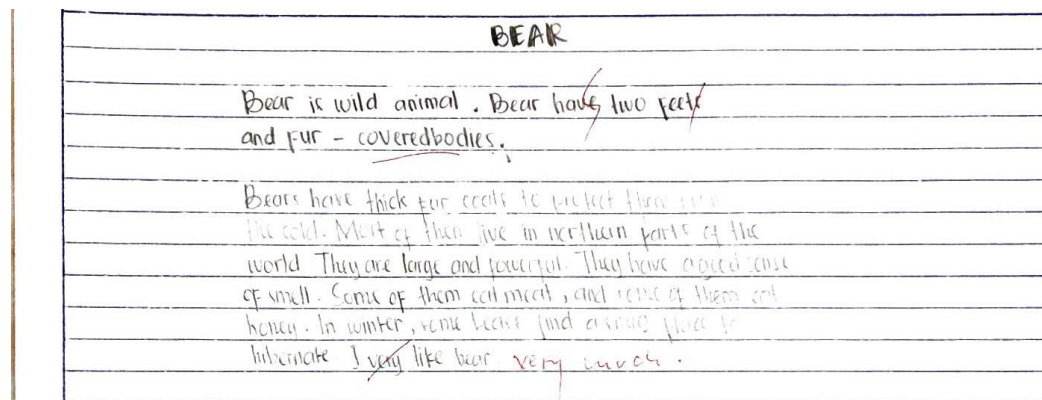 BEAR
Bear is wild animal. Bear haves two feets
and fur - coveredbodies.
Bears have thick fur coats to protect them from
the cold. Most of them live in northern parts of the
world They are large and powerful. They have a good sense
of smell. Some of them eat meat, and some of them eat
honey. In winter, some bears find a place to
hibernate I very like bear very much.